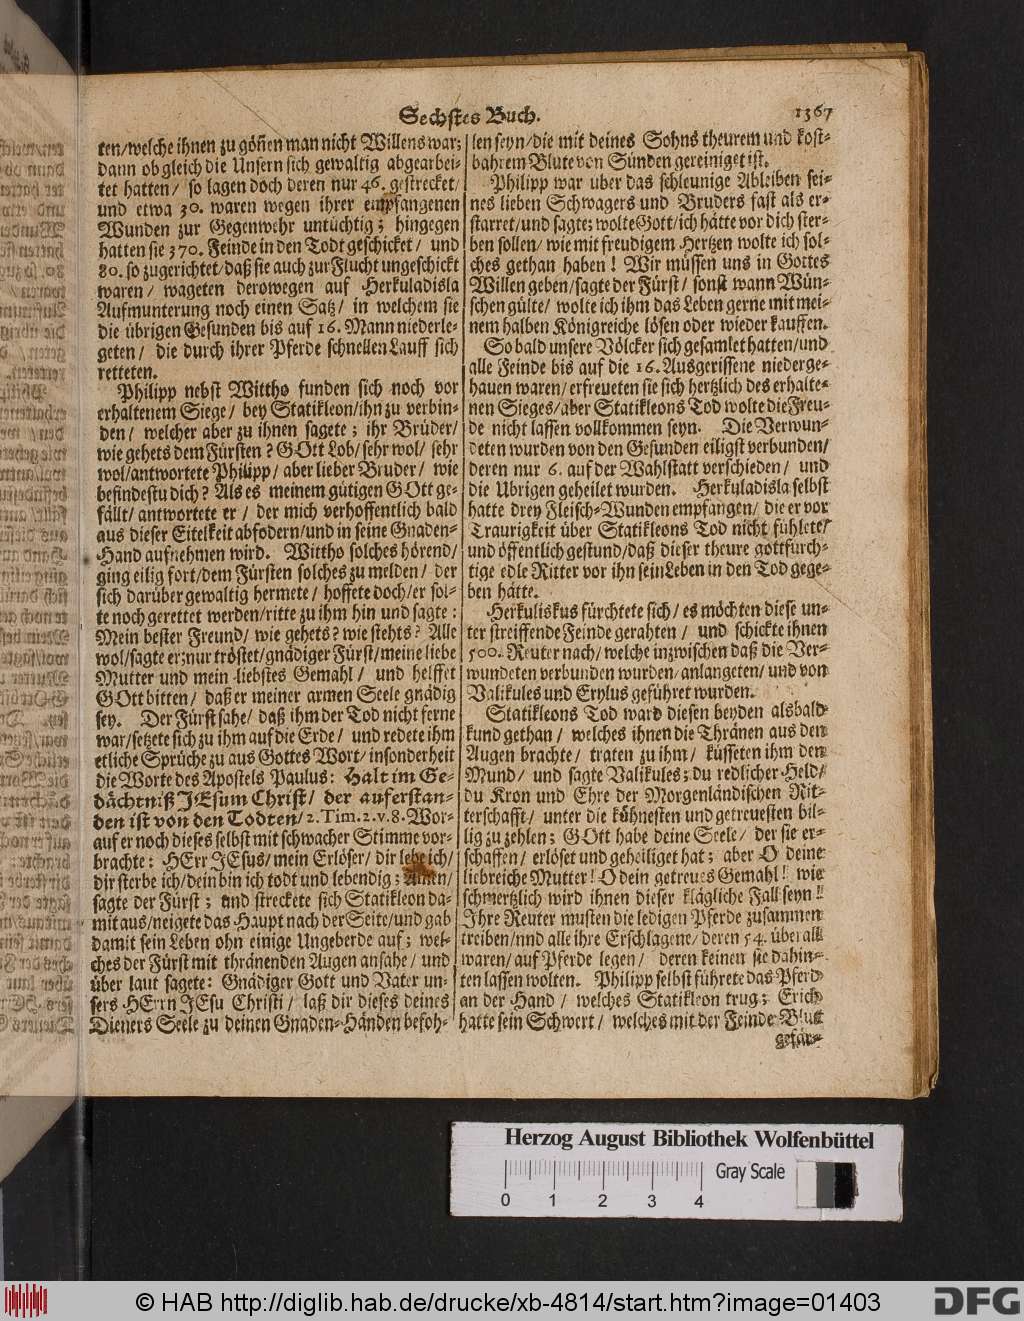 Sechstes Buch.
1367
ten/welche ihnen zu göñen man nicht Willens war;
dann ob gleich die Unsern sich gewaltig abgearbei-
tet hatten/ so lagen doch deren nur 46. gestrecket/
und etwa 30. waren wegen ihrer empfangenen
Wunden zur Gegenwehr untüchtig; hingegen
hatten sie 370. Feinde in den Todt geschicket/ und
80. so zugerichtet/daß sie auch zur Flucht ungeschickt
waren/ wageten derowegen auf Herkuladisla
Aufmunterung noch einen Satz/ in welchem sie
die übrigen Gesunden bis auf 16. Mann niederle-
geten/ die durch ihrer Pferde schnellen Lauff sich
retteten.
Philipp nebst Wittho funden sich noch vor
erhaltenem Siege/ bey Statikleon/ihn zu verbin-
den/ welcher aber zu ihnen sagete; ihr Brüder/
wie gehets dem Fürsten? GOtt Lob/sehr wol/ sehr
wol/antwortete Philipp/ aber lieber Bruder/ wie
befindestu dich? Als es meinem gütigen GOtt ge-
fällt/ antwortete er/ der mich verhoffentlich bald
aus dieser Eitelkeit abfodern/und in seine Gnaden-
Hand aufnehmen wird. Wittho solches hörend/
ging eilig fort/dem Fürsten solches zu melden/ der
sich darüber gewaltig hermete/ hoffete doch/er sol-
te noch gerettet werden/ritte zu ihm hin und sagte:
Mein bester Freund/ wie gehets? wie stehts? Alle
wol/sagte er;nur tröstet/gnädiger Fürst/meine liebe
Mutter und mein liebstes Gemahl/ und helffet
GOtt bitten/ daß er meiner armen Seele gnädig
sey. Der Fürst sahe/ daß ihm der Tod nicht ferne
war/setzete sich zu ihm auf die Erde/ und redete ihm
etliche Sprüche zu aus Gottes Wort/insonderheit
die Worte des Apostels Paulus: Halt im Ge-
dächtniß JEsum Christ/ der auferstan-
den ist von den Todten/2. Tim. 2. v. 8. Wor-
auf er noch dieses selbst mit schwacher Stimme vor-
brachte: HErr JEsus/mein Erlöser/ dir lebe ich/
dir sterbe ich/dein bin ich todt und lebendig; Amen/
sagte der Fürst; und streckete sich Statikleon da-
mit aus/neigete das Haupt nach der Seite/und gab
damit sein Leben ohn einige Ungeberde auf; wel-
ches der Fürst mit thränenden Augen ansahe/ und
über laut sagete: Gnädiger Gott und Vater un-
sers HErrn JEsu Christi/ laß dir dieses deines
Dieners Seele zu deinen Gnaden-Händen befoh-
len seyn/die mit deines Sohns theurem und kost-
bahrem Blute von Sünden gereiniget ist.
Philipp war über das schleunige Ableiben sei-
nes lieben Schwagers und Bruders fast als er-
starret/und sagte; wolte Gott/ich hätte vor dich ster-
ben sollen/ wie mit freudigem Hertzen wolte ich sol-
ches gethan haben! Wir müssen uns in Gottes
Willen geben/sagte der Fürst/ sonst wann Wün-
schen gülte/ wolte ich ihm das Leben gerne mit mei-
nem halben Königreiche lösen oder wieder kauffen.
So bald unsere Völcker sich gesamlet hatten/und
alle Feinde bis auf die 16. Ausgerissene niederge-
hauen waren/erfreueten sie sich hertzlich des erhalte-
nen Sieges/aber Statikleons Tod wolte die Freu-
de nicht lassen vollkommen seyn. Die Verwun-
deten wurden von den Gesunden eiligst verbunden/
deren nur 6. auf der Wahlstatt verschieden/ und
die Ubrigen geheilet wurden. Herkuladisla selbst
hatte drey Fleisch-Wunden empfangen/ die er vor
Traurigkeit über Statikleons Tod nicht fühlete/
und öffentlich gestund/daß dieser theure gottfürch-
tige edle Ritter vor ihn sein Leben in den Tod gege-
ben hätte.
Herkuliskus fürchtete sich/ es möchten diese un-
ter streiffende Feinde gerahten/ und schickte ihnen
500. Reuter nach/ welche inzwischen daß die Ver-
wundeten verbunden wurden/anlangeten/ und von
Valikules und Erylus geführet wurden.
Statikleons Tod ward diesen beyden alsbald
kund gethan/ welches ihnen die Thränen aus den
Augen brachte/ traten zu ihm/ küsseten ihm den
Mund/ und sagte Valikules; du redlicher Held/
du Kron und Ehre der Morgenländischen Rit-
terschafft/ unter die kühnesten und getreuesten bil-
lig zu zehlen; GOtt habe deine Seele/ der sie er-
schaffen/ erlöset und geheiliget hat; aber O deine
liebreiche Mutter! O dein getreues Gemahl! wie
schmertzlich wird ihnen dieser klägliche Fall seyn!
Ihre Reuter musten die ledigen Pferde zusammen
treiben/nnd alle ihre Erschlagene/ deren 54. überall
waren/ auf Pferde legen/ deren keinen sie dahin-
ten lassen wolten. Philipp selbst führete das Pferd
an der Hand/ welches Statikleon trug; Erich
hatte sein Schwert/ welches mit der Feinde Blut
gefär-
Herzog August Bibliothek Wolfenbüttel
Gray Scale
0 1 2 3 4
© HAB http://diglib.hab.de/drucke/xb-4814/start.htm?image=01403
DFG